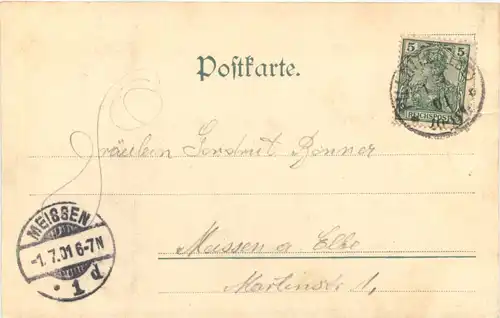 5 5
REICHSPOST
Postkarte.
Fräulein Gertrut Renner
Meissen a. Elbe
Martinstr 1,
MEISSEN
-1.7.01 6-7N
* 1 d.